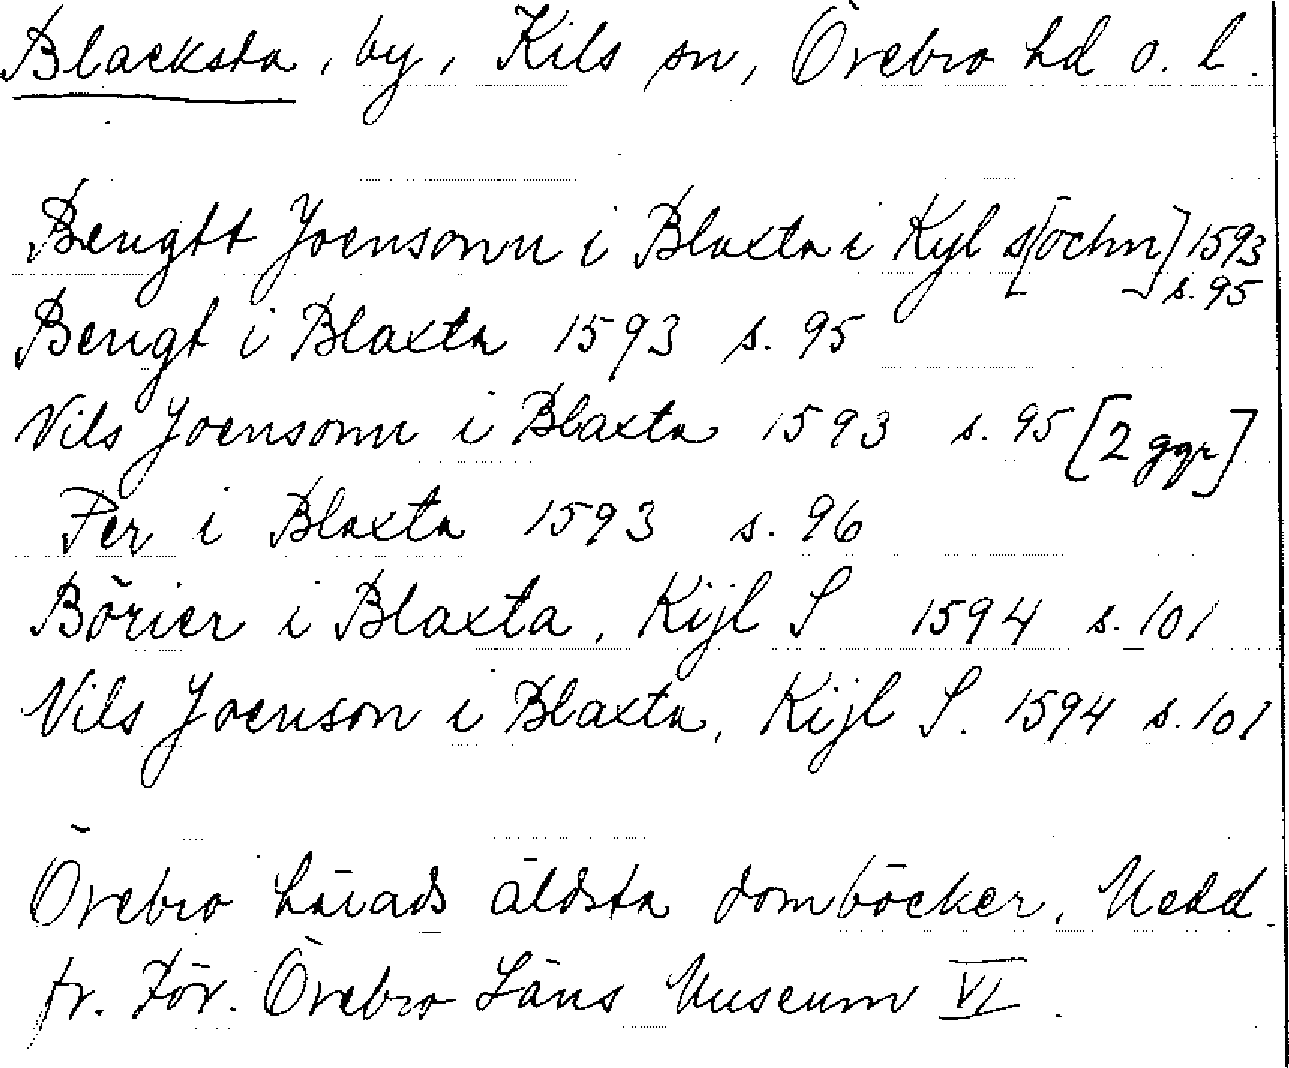 Blacksta, by, Kils sn, Örebro hd o. l.
Bengtt Joensonn i Blaxta i Kyl s[öchn] 1593
s. 95
Bengt i Blaxta 1593 s. 95
Nils Joensonn i Blaxta 1593 s. 95 [2 ggr]
Per i Blaxta 1593 s. 96
Börier i Blaxta, Kijl S 1594 s. 101
Nils Joenson i Blaxta, Kijl S. 1594 s. 101
Örebro härads äldsta domböcker. Medd.
fr. För. Örebro Läns Museum VI.